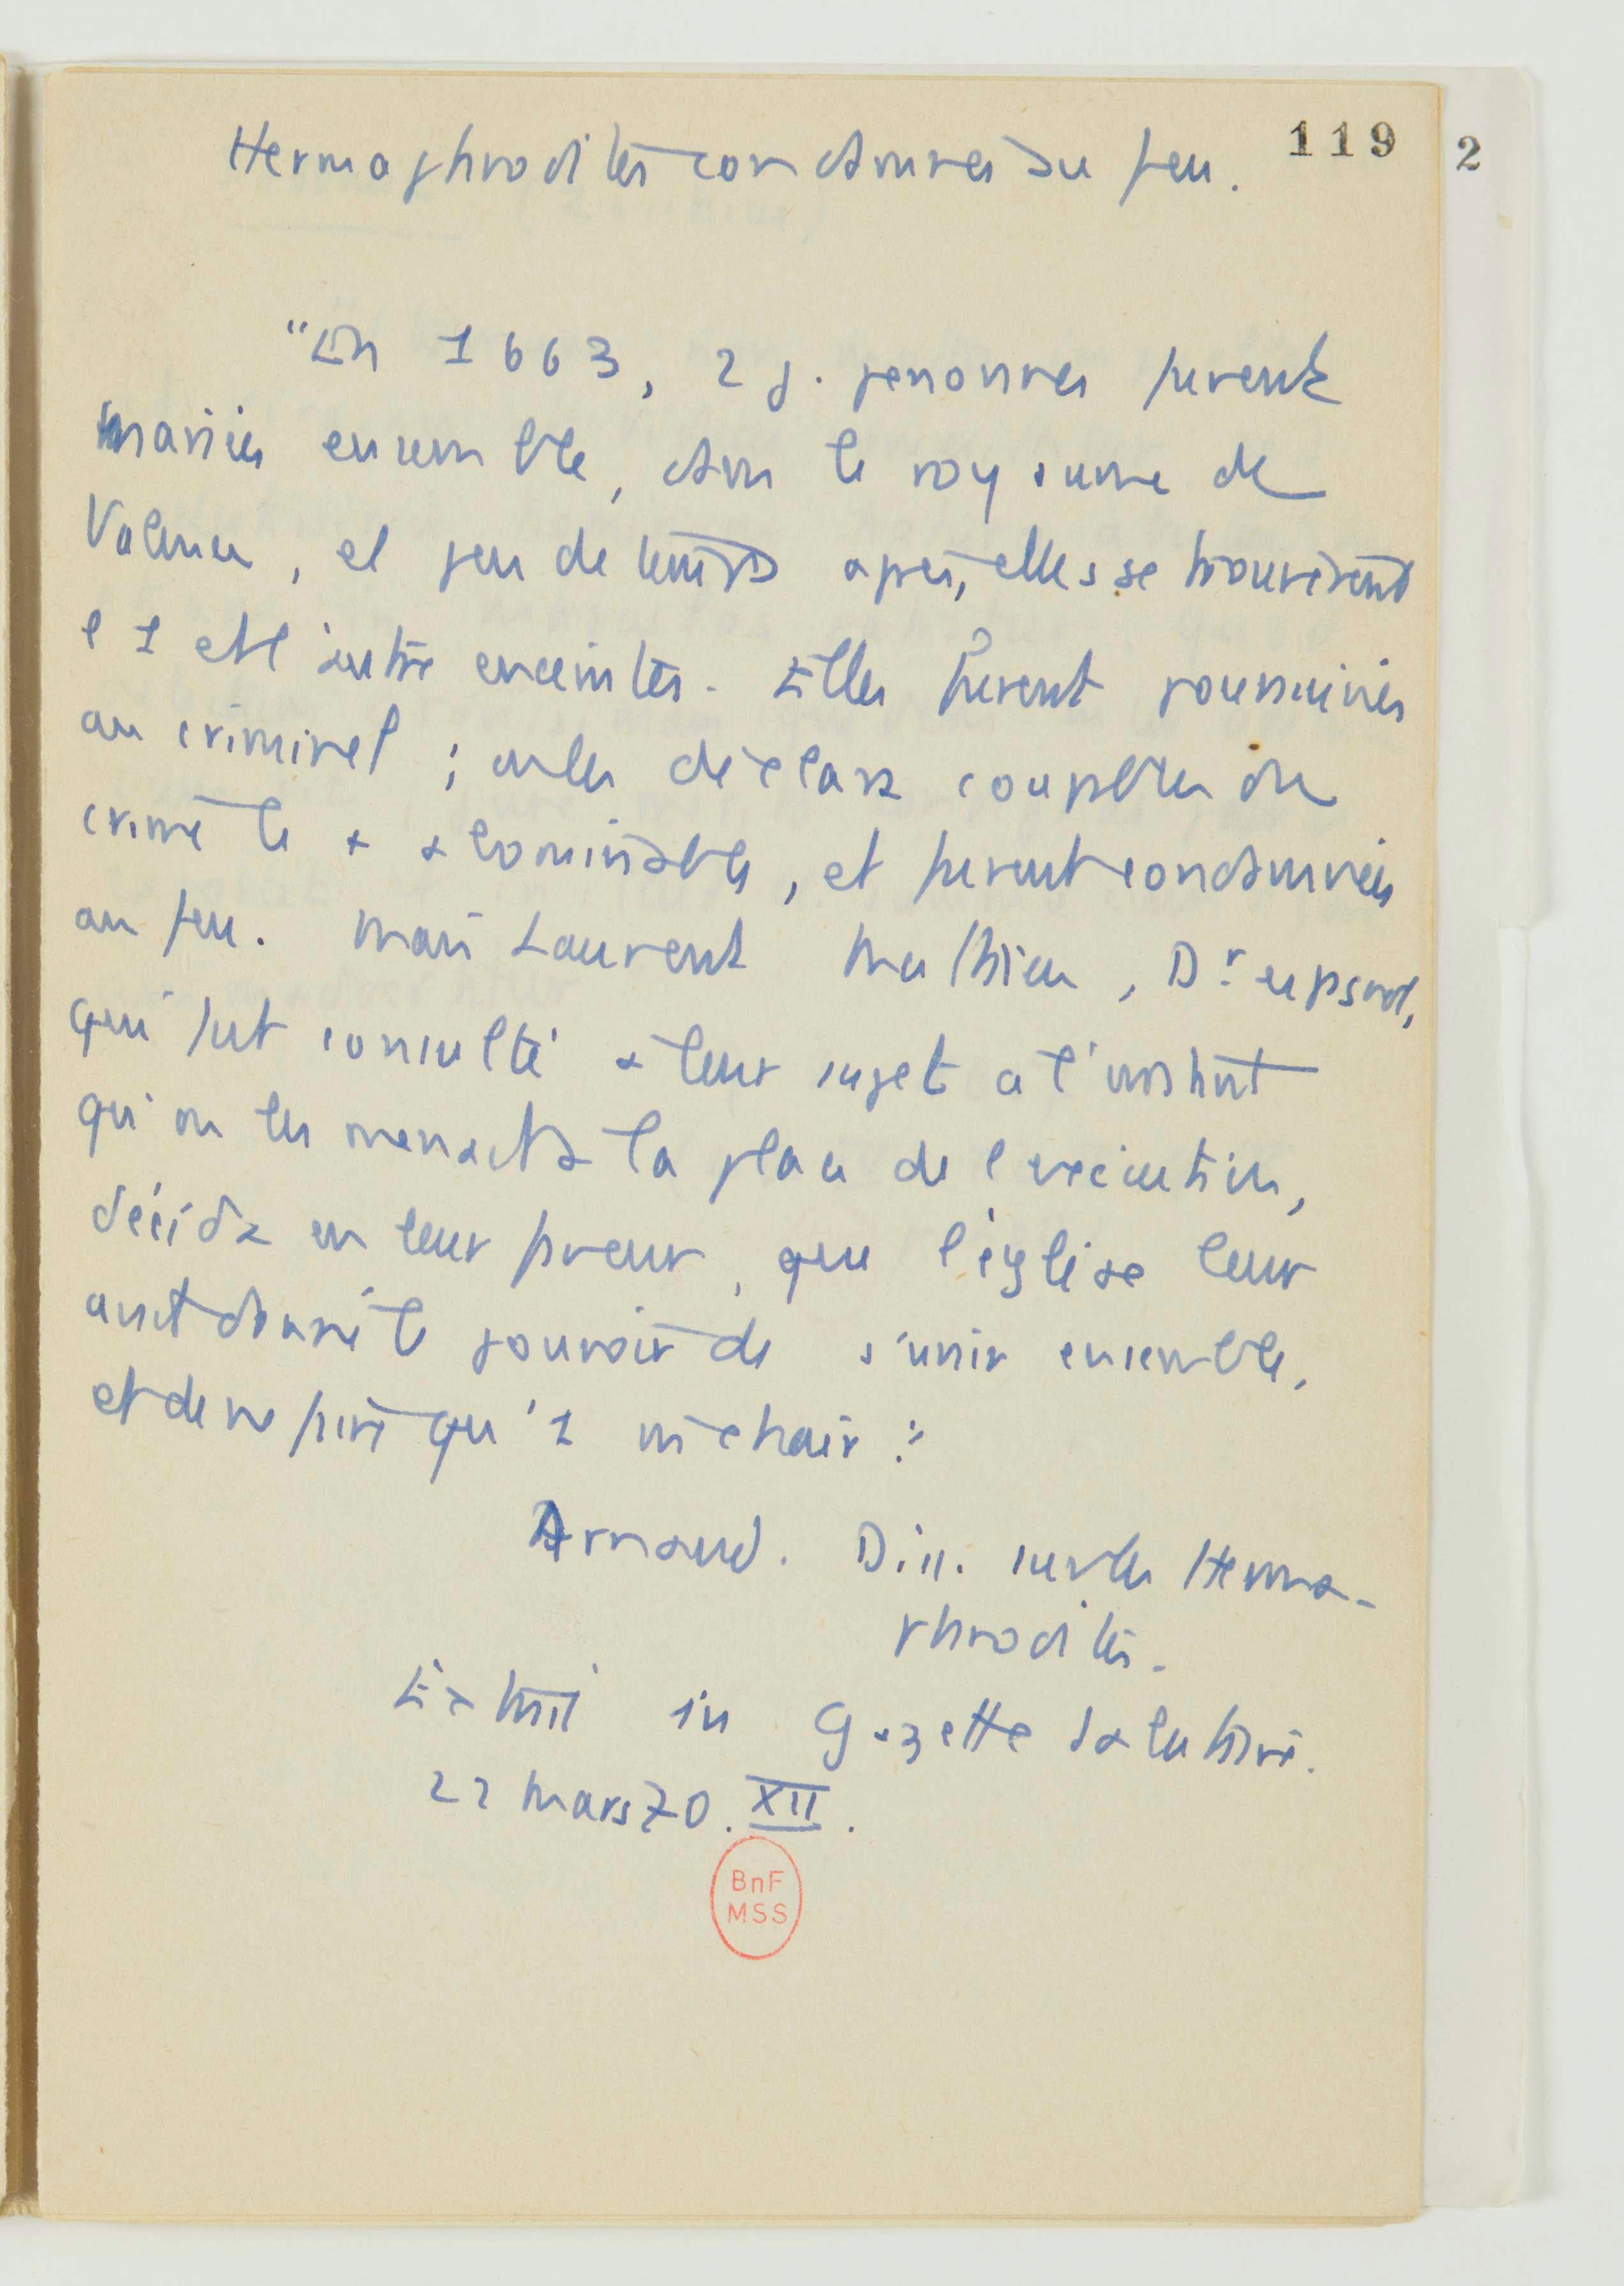 119
2
Hermaphrodites condamnés au feu.
"En 1663, 2 j. personnes furent
mariées ensemble, dans le royaume de
Valence, et peu de temps après, elles se trouvèrent
l'1 et l'autre enceintes. Elles furent poursuivies
au criminel ; on les déclara coupables du
crime le + abominable, et furent condamnées
au feu. Mais Laurent Mathieu, Dr espagnol,
qui fut consulté à leur sujet à l'instant
qu'on les menait à la place de l'exécution,
décida en leur faveur, que l'église leur
avait donné le pouvoir de s'unir ensemble,
et de ne faire qu'1 chair."
Arnaud. Diss. sur les Herma-
phrodites.
Extrait in Gazette salutaire.
22 mars 70. XII.
BnF
MSS